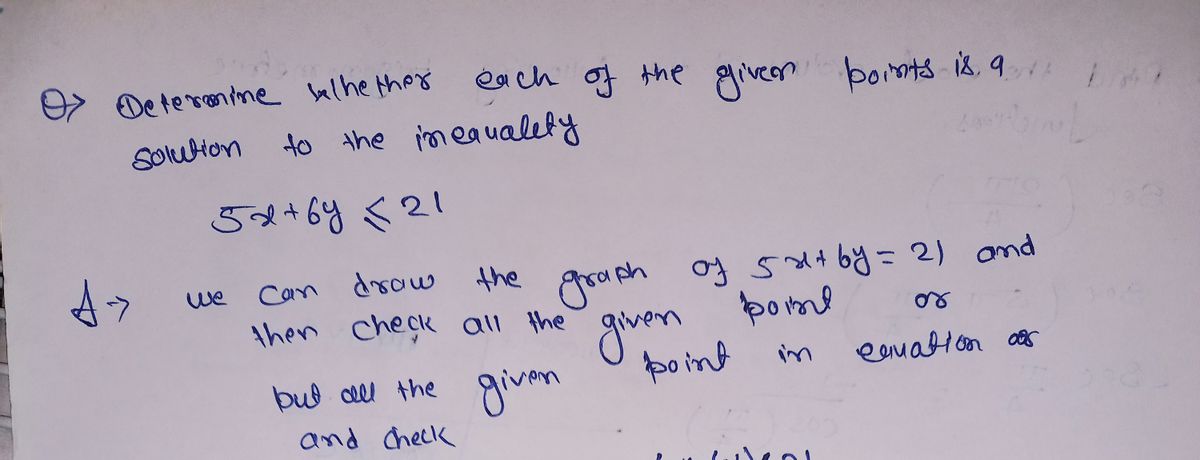 Q> Determine whether each of the given points is a
solution to the inequalety
5x+6y ≤ 21
A-> we can draw the graph of 5x+6y = 21 and
then check all the given point or
put all the given point in equation
and check